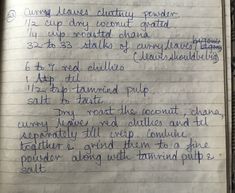 Curry leaves chutney powder
1/2 cup dry coconut grated
1/4 cup roasted chana
32 to 33 stalks of curry leaves
(leaves should be big)
6 to 7 red chillies
1 tsp tel
1 1/2 tsp tamrind pulp
salt to taste
Dry roast the coconut, chana,
curry leaves red chillies and tel
separately till crisp. Combine
together & grind them to a fine
powder along with tamrind pulp &
salt